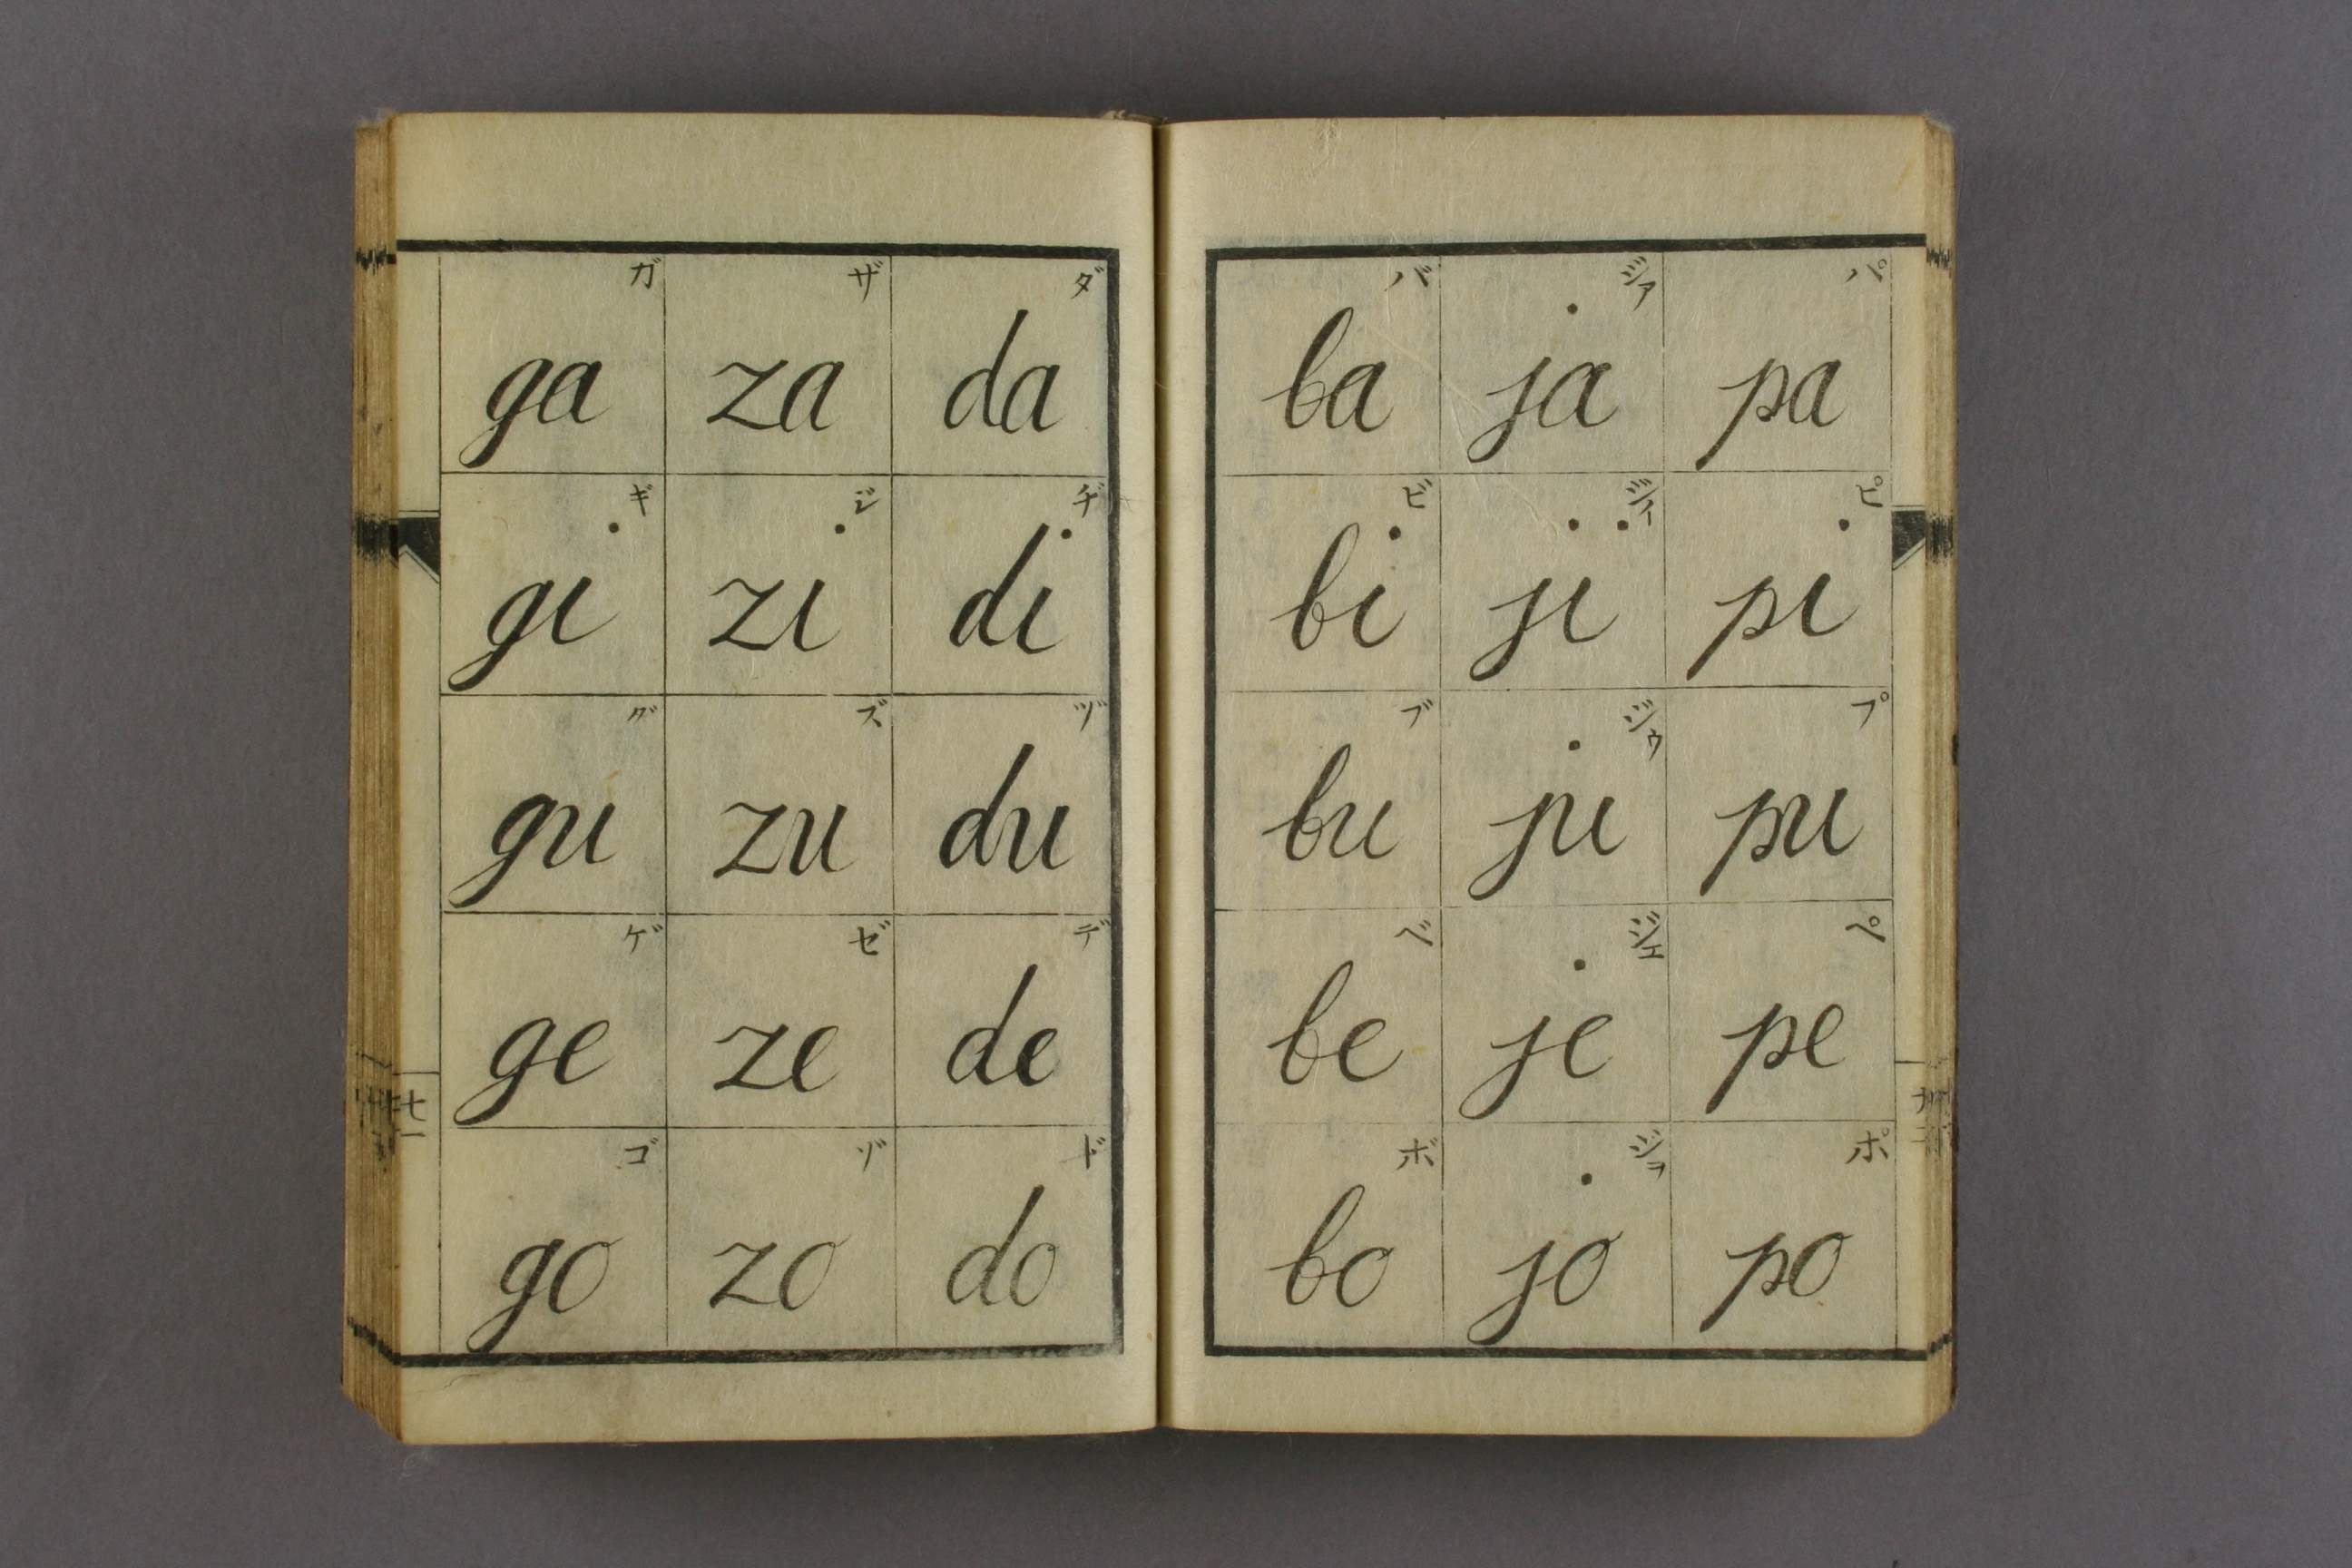 ガ ザ ダ
ga za da
ギ ジ ヂ
gi zi di
グ ズ ヅ
gu zu du
ゲ ゼ デ
ge ze de
ゴ ゾ ド
go zo do
バ ジァ パ
ba ja pa
ビ ジィ ピ
bi ji pi
ブ ジゥ プ
bu ju pu
ベ ジェ ペ
be je pe
ボ ジョ ポ
bo jo po